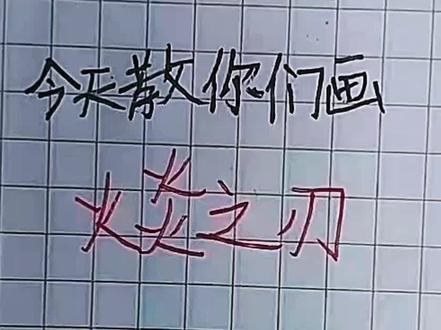 今天教你们画
火炎之刃